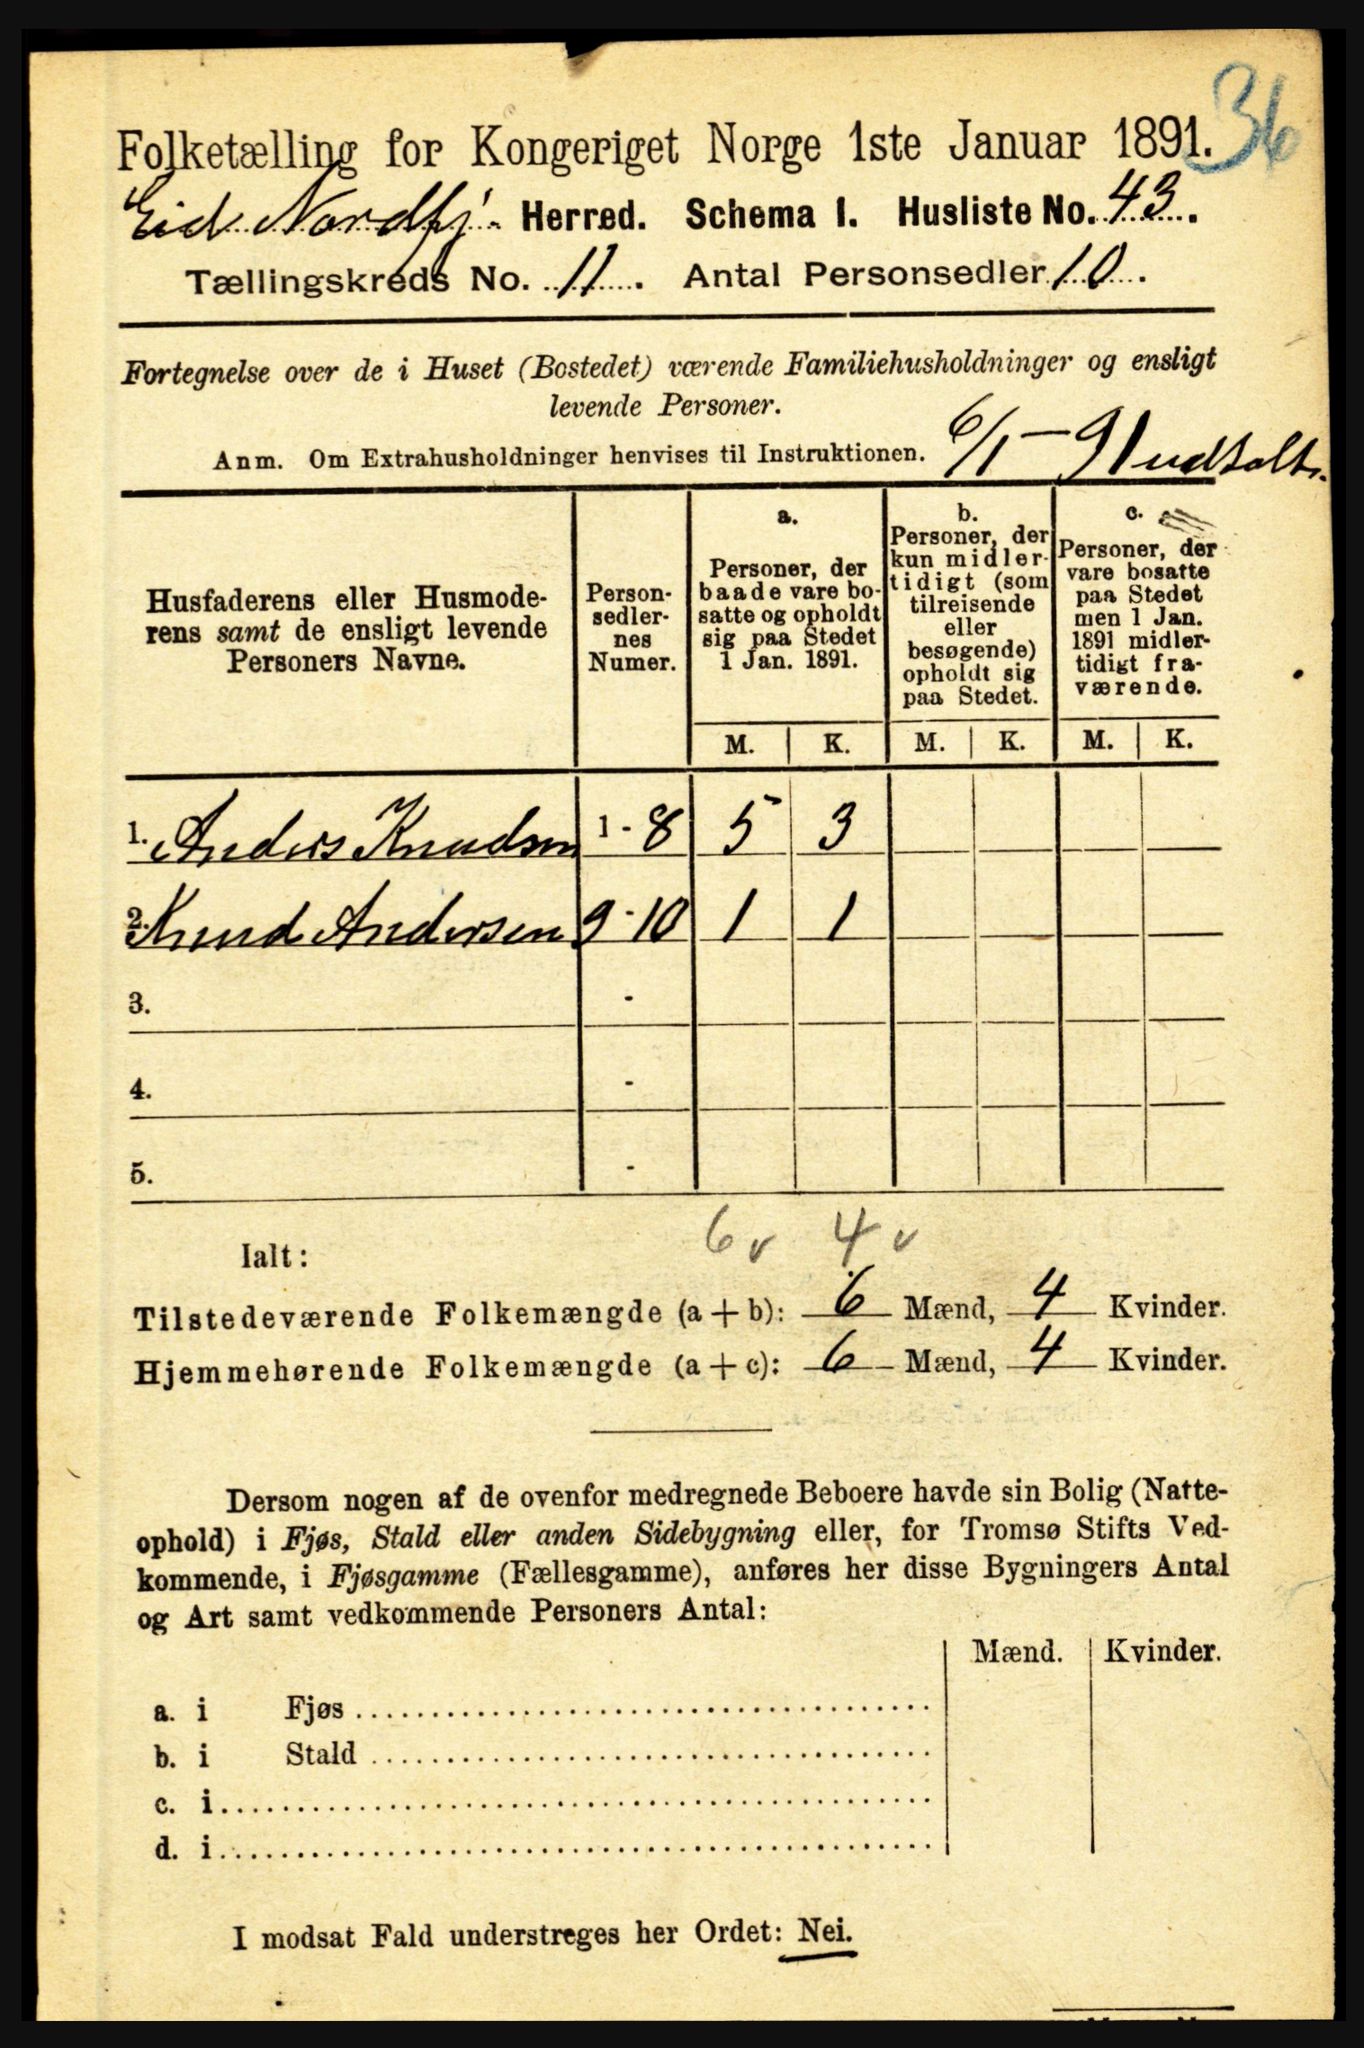 36
Folketælling for Kongeriget Norge 1ste Januar 1891.
Eid Nordfj. Herred. Schema I. Husliste No. 43.
Tællingskreds No. 11. Antal Personsedler 10.
Fortegnelse over de i Huset (Bostedet) værende Familiehusholdninger og ensligt
levende Personer.
Anm. Om Extrahusholdninger henvises til Instruktionen. 6/1-91
Husfaderens eller Husmode-
rens samt de ensligt levende
Personers Navne.
Person-
sedler-
nes
Numer.
a.
Personer, der
baade vare bo-
satte og opholdt
sig paa Stedet
1 Jan. 1891.
b.
Personer, der
kun midler-
tidigt (som
tilreisende
eller
besøgende)
opholdt sig
paa Stedet.
c.
Personer, der
vare bosatte
paa Stedet
men 1 Jan.
1891 midler-
tidigt fra-
værende.
M. K. M. K. M. K.
1. Anders Knudsen 1 - 8 5 3
2. Knud Andersen 9 - 10 1 1
3. -
4. -
5. -
6 v 4 v
Ialt:
Tilstedeværende Folkemængde (a + b): 6 Mænd, 4 Kvinder.
Hjemmehørende Folkemængde (a + c): 6 Mænd, 4 Kvinder.
Dersom nogen af de ovenfor medregnede Beboere havde sin Bolig (Natte-
ophold) i Fjøs, Stald eller anden Sidebygning eller, for Tromsø Stifts Ved-
kommende, i Fjøsgamme (Fællesgamme), anføres her disse Bygningers Antal
og Art samt vedkommende Personers Antal:
Mænd. Kvinder.
a. i Fjøs
b. i Stald
c. i
d. i
I modsat Fald understreges her Ordet: Nei.